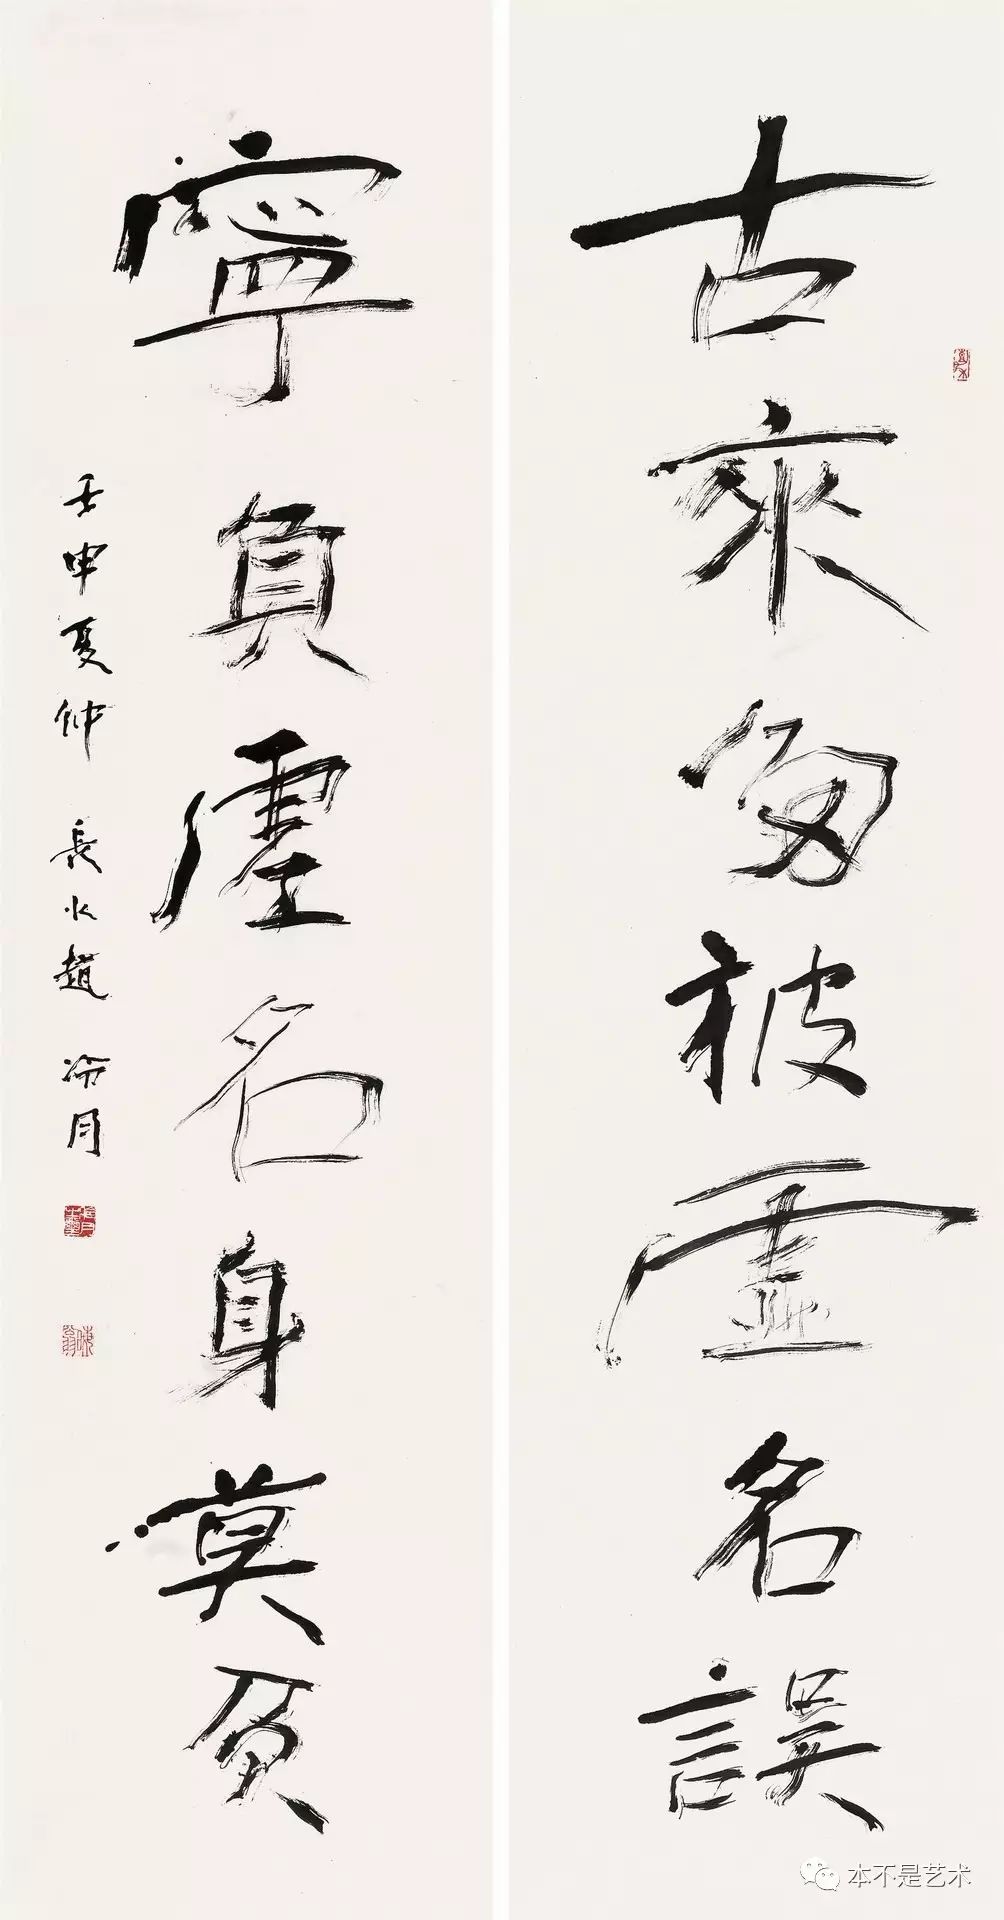 古來多被虛名誤
寧負虛名身莫負
壬申夏仲 長水趙冷月
本不是艺术